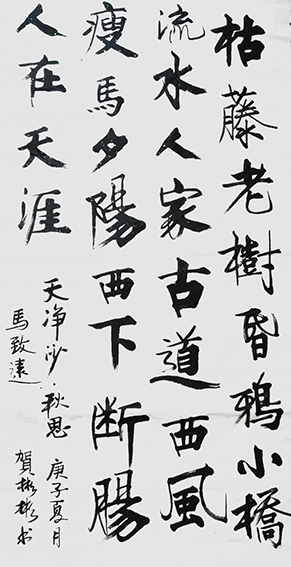 枯藤老樹昏鴉小橋
流水人家古道西風
瘦馬夕陽西下断腸
人在天涯
天净沙·秋思 庚子夏月
馬致遠 賀彬彬书